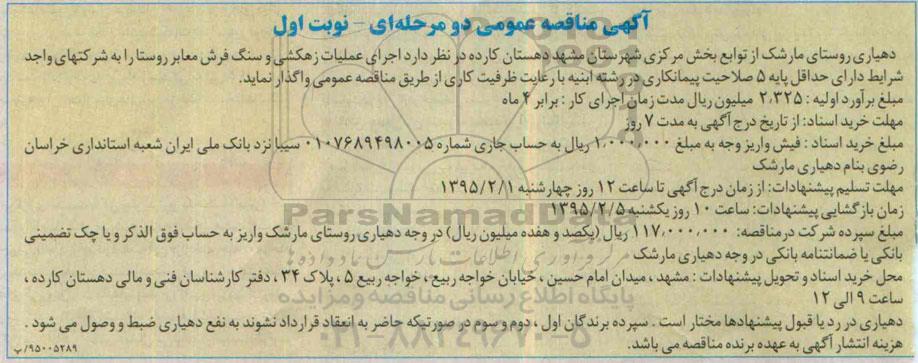 آگهی مناقصه عمومی دو مرحله‌ای - نوبت اول
دهیاری روستای مارشک از توابع بخش مرکزی شهرستان مشهد دهستان کارده در نظر دارد اجرای عملیات زهکشی و سنگ فرش معابر روستا را به شرکتهای واجد
شرایط دارای حداقل پایه ۵ صلاحیت پیمانکاری در رشته ابنیه با رعایت ظرفیت کاری از طریق مناقصه عمومی واگذار نماید.
مبلغ برآورد اولیه : ۲،۳۲۵ میلیون ریال مدت زمان اجرای کار : برابر ۴ ماه
مهلت خرید اسناد: از تاریخ درج آگهی به مدت ۷ روز
مبلغ خرید اسناد : فیش واریز وجه به مبلغ ۱،۰۰۰،۰۰۰ ریال به حساب جاری شماره ۰۱۰۷۶۸۹۴۹۸۰۰۵ سیبا نزد بانک ملی ایران شعبه استانداری خراسان
رضوی بنام دهیاری مارشک
مهلت تسلیم پیشنهادات: از زمان درج آگهی تا ساعت ۱۲ روز چهارشنبه ۱۳۹۵/۲/۱
زمان بازگشایی پیشنهادات: ساعت ۱۰ روز یکشنبه ۱۳۹۵/۲/۵
ParsNamadData
مبلغ سپرده شرکت در مناقصه: ۱۱۷،۰۰۰،۰۰۰ ریال (یکصد و هفده میلیون ریال) در وجه دهیاری روستای مارشک واریز به حساب فوق الذکر و یا چک تضمینی
بانکی یا ضمانتنامه بانکی در وجه دهیاری مارشک
محل خرید اسناد و تحویل پیشنهادات : مشهد ، میدان امام حسین ، خیابان خواجه ربیع ، خواجه ربیع ۵ ، پلاک ۳۴ ، دفتر کارشناسان فنی و مالی دهستان کارده ،
ساعت ۹ الی ۱۲
پایگاه اطلاع رسانی مناقصه و مزایده
دهیاری در رد یا قبول پیشنهادها مختار است . سپرده برندگان اول ، دوم و سوم در صورتیکه حاضر به انعقاد قرارداد نشوند به نفع دهیاری ضبط و وصول می شود .
۰۲۱-۸۸۳۴۹۶۷۰-۵
هزینه انتشار آگهی به عهده برنده مناقصه می باشد.
۹۵۰۰۵۲۸۹/پ